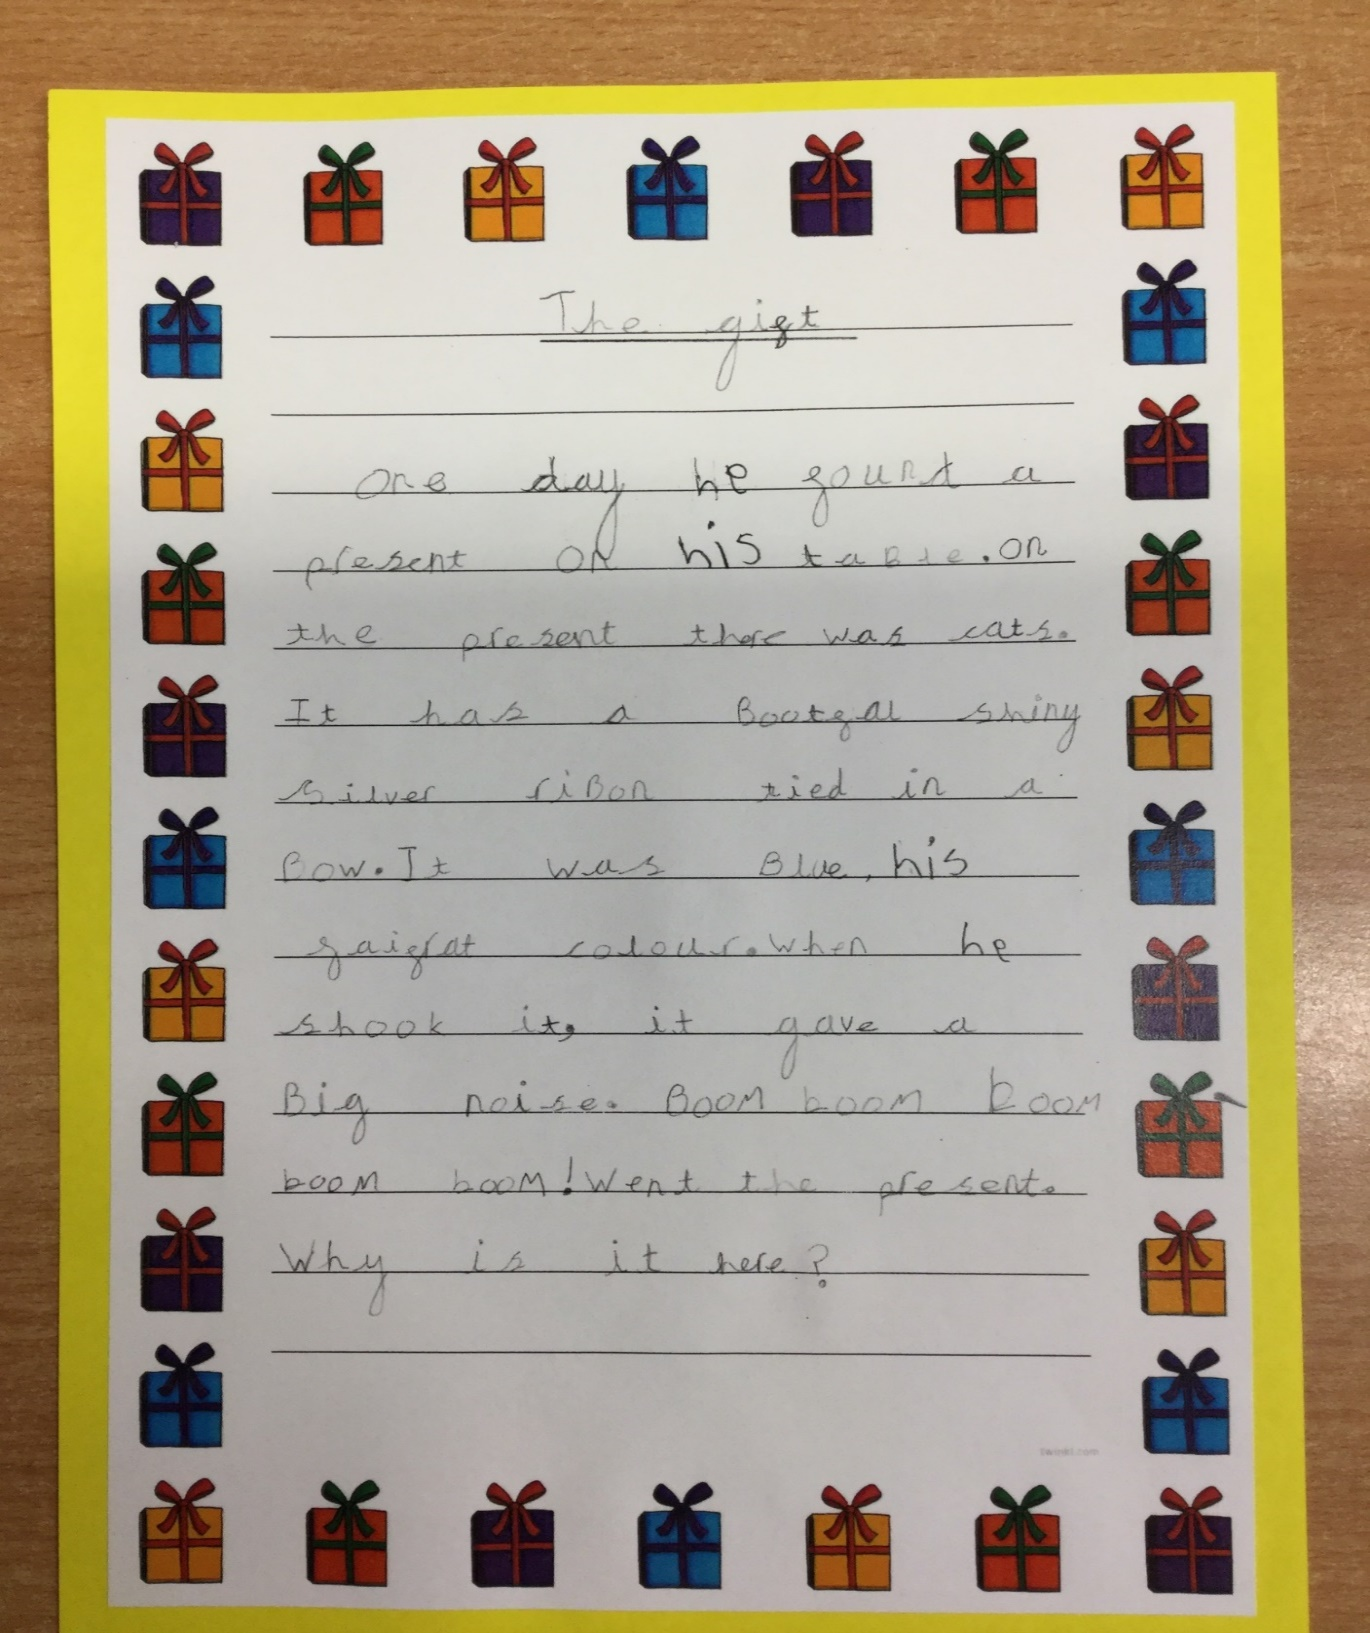 The gift
One day he fount a
present on his taBle. on
the present there was cats.
It has a Bootfal shiny
silver riBon tied in a
Bow. It was Blue, his
faifrat colour. When he
shook it, it gave a
Big noise. Boom boom boom
boom boom! Went the present.
Why is it here?
twinkl.com